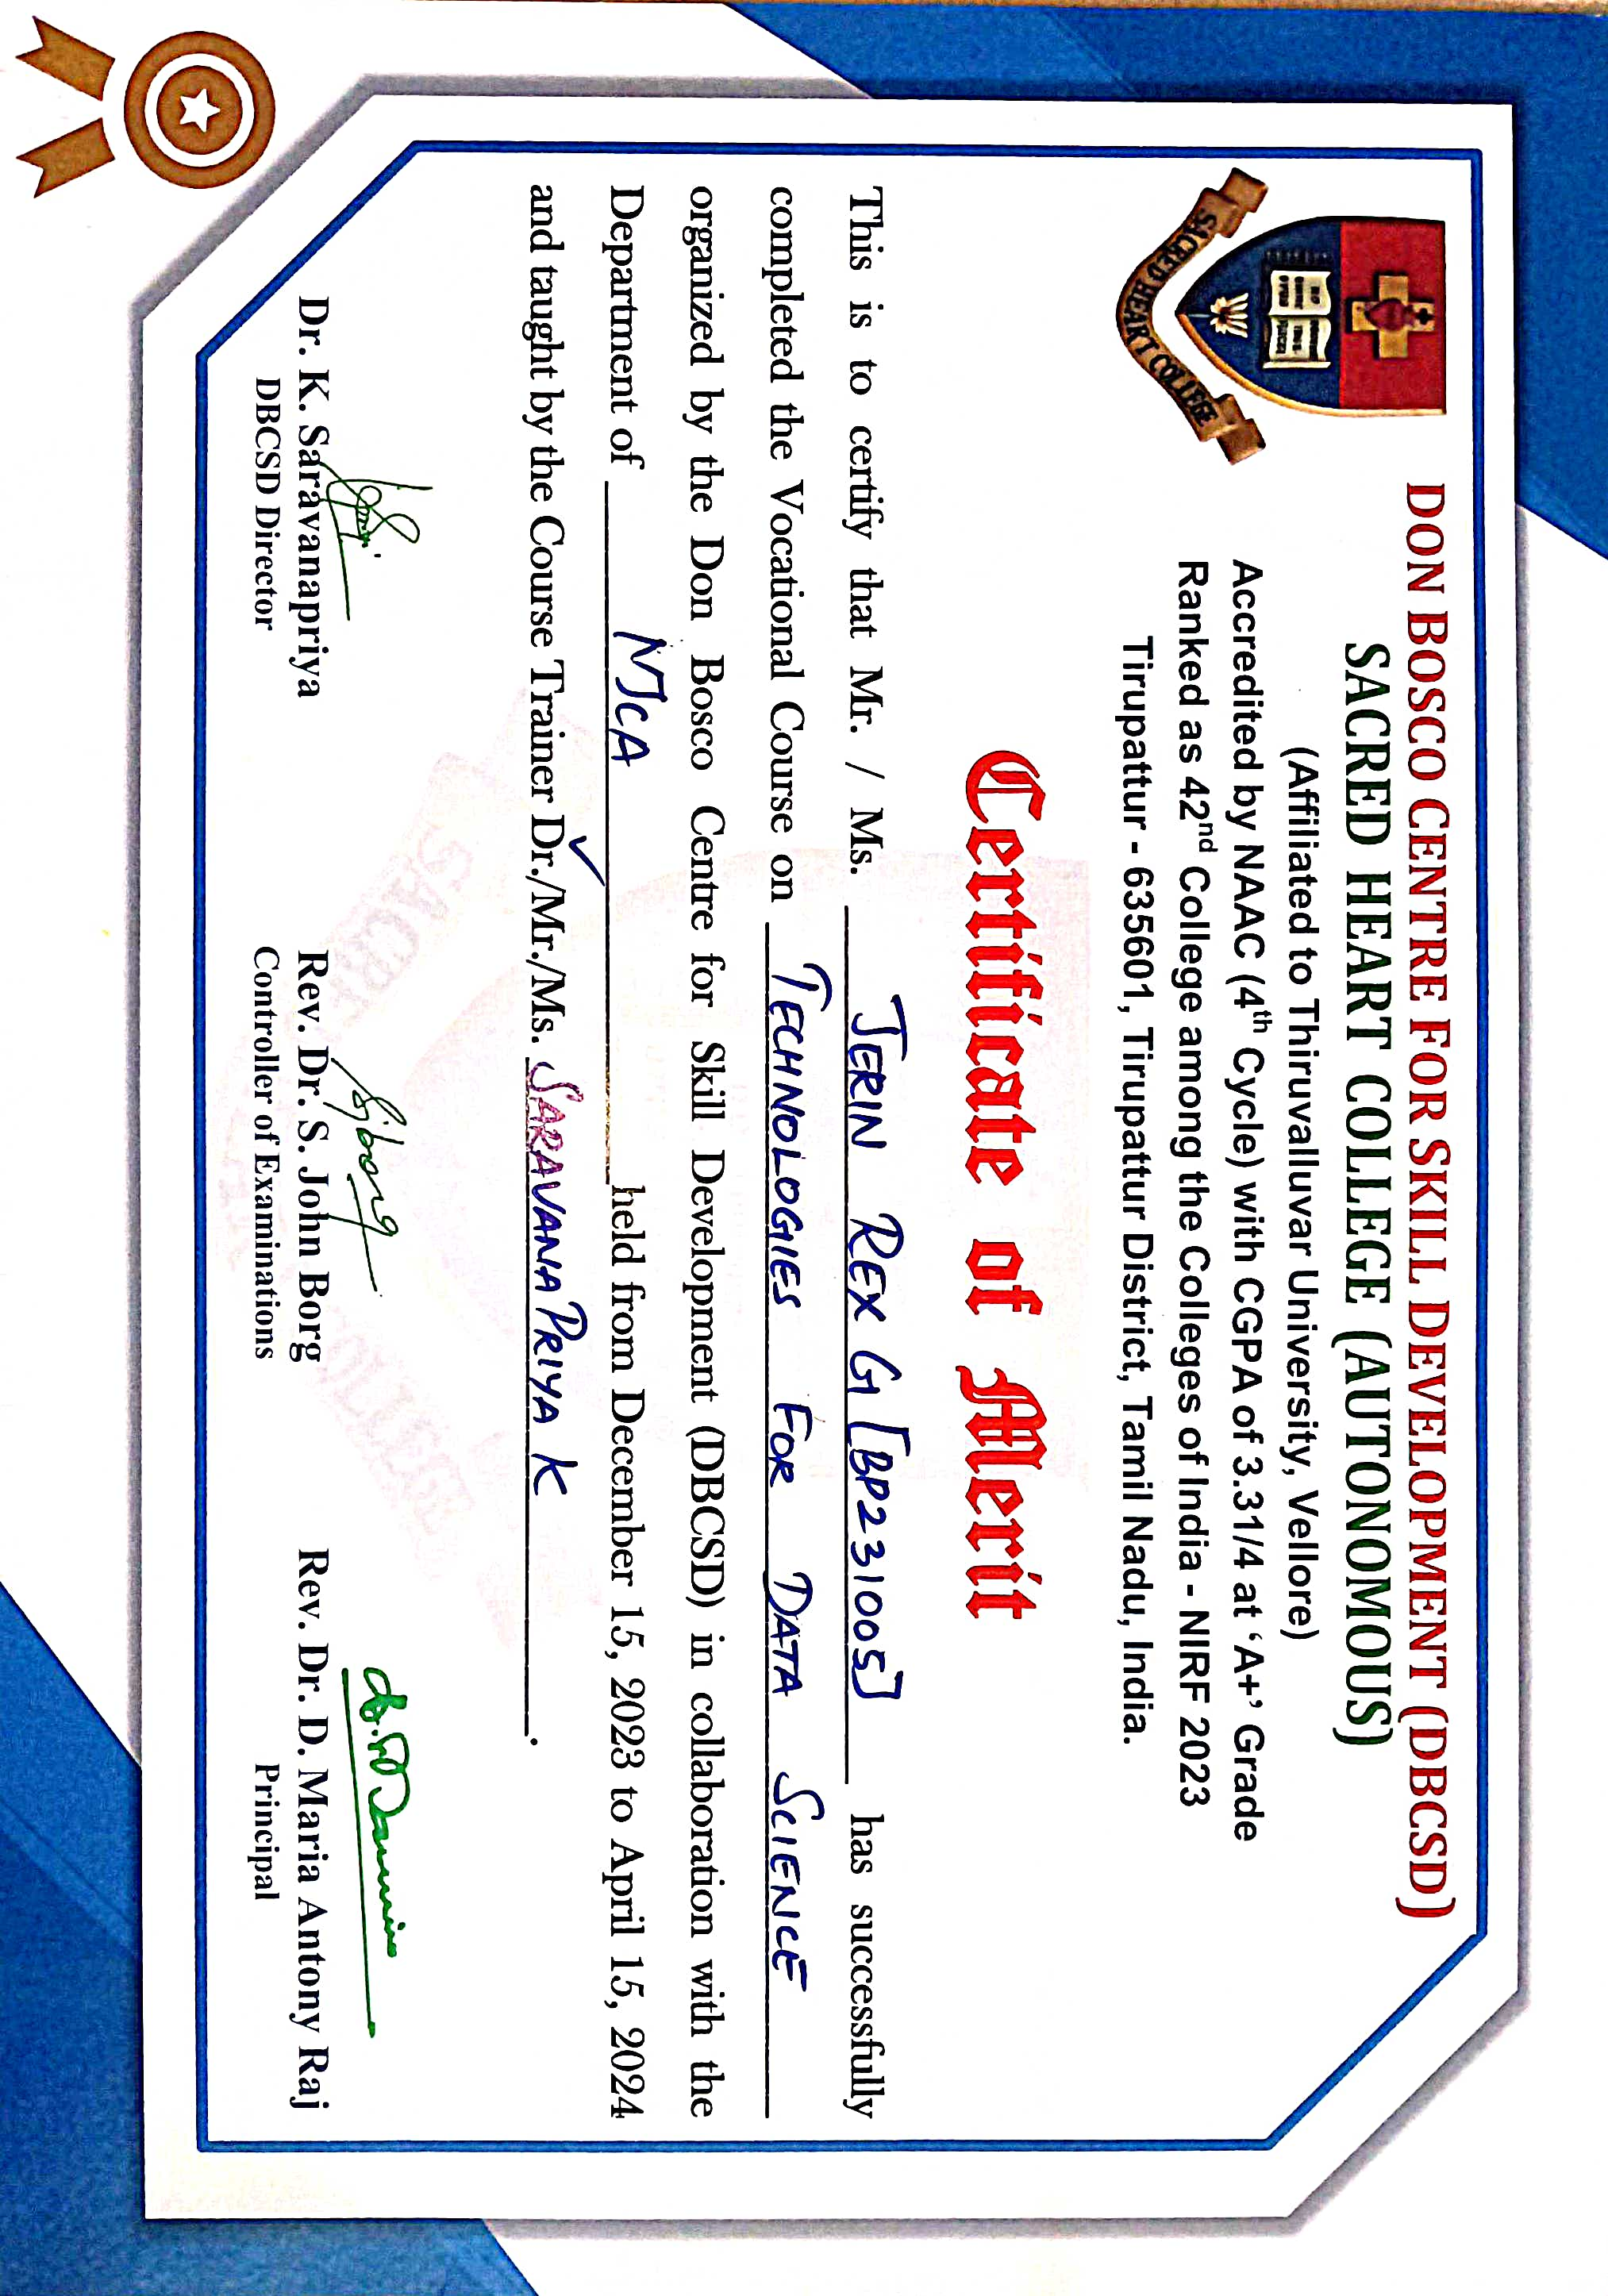 DON BOSCO CENTRE FOR SKILL DEVELOPMENT (DBCSD)
SACRED HEART COLLEGE (AUTONOMOUS)
(Affiliated to Thiruvalluvar University, Vellore)
Accredited by NAAC (4th Cycle) with CGPA of 3.31/4 at ‘A+’ Grade
Ranked as 42nd College among the Colleges of India - NIRF 2023
Tirupattur - 635601, Tirupattur District, Tamil Nadu, India.
SACRED HEART COLLEGE
Certificate of Merit
This is to certify that Mr. / Ms. JERIN REX G [BP231005] has successfully
completed the Vocational Course on TECHNOLOGIES FOR DATA SCIENCE
organized by the Don Bosco Centre for Skill Development (DBCSD) in collaboration with the
Department of MCA held from December 15, 2023 to April 15, 2024
and taught by the Course Trainer Dr./Mr./Ms. SARAVANA PRIYA K.
Dr. K. Saravanapriya
DBCSD Director
Rev. Dr. S. John Borg
Controller of Examinations
Rev. Dr. D. Maria Antony Raj
Principal